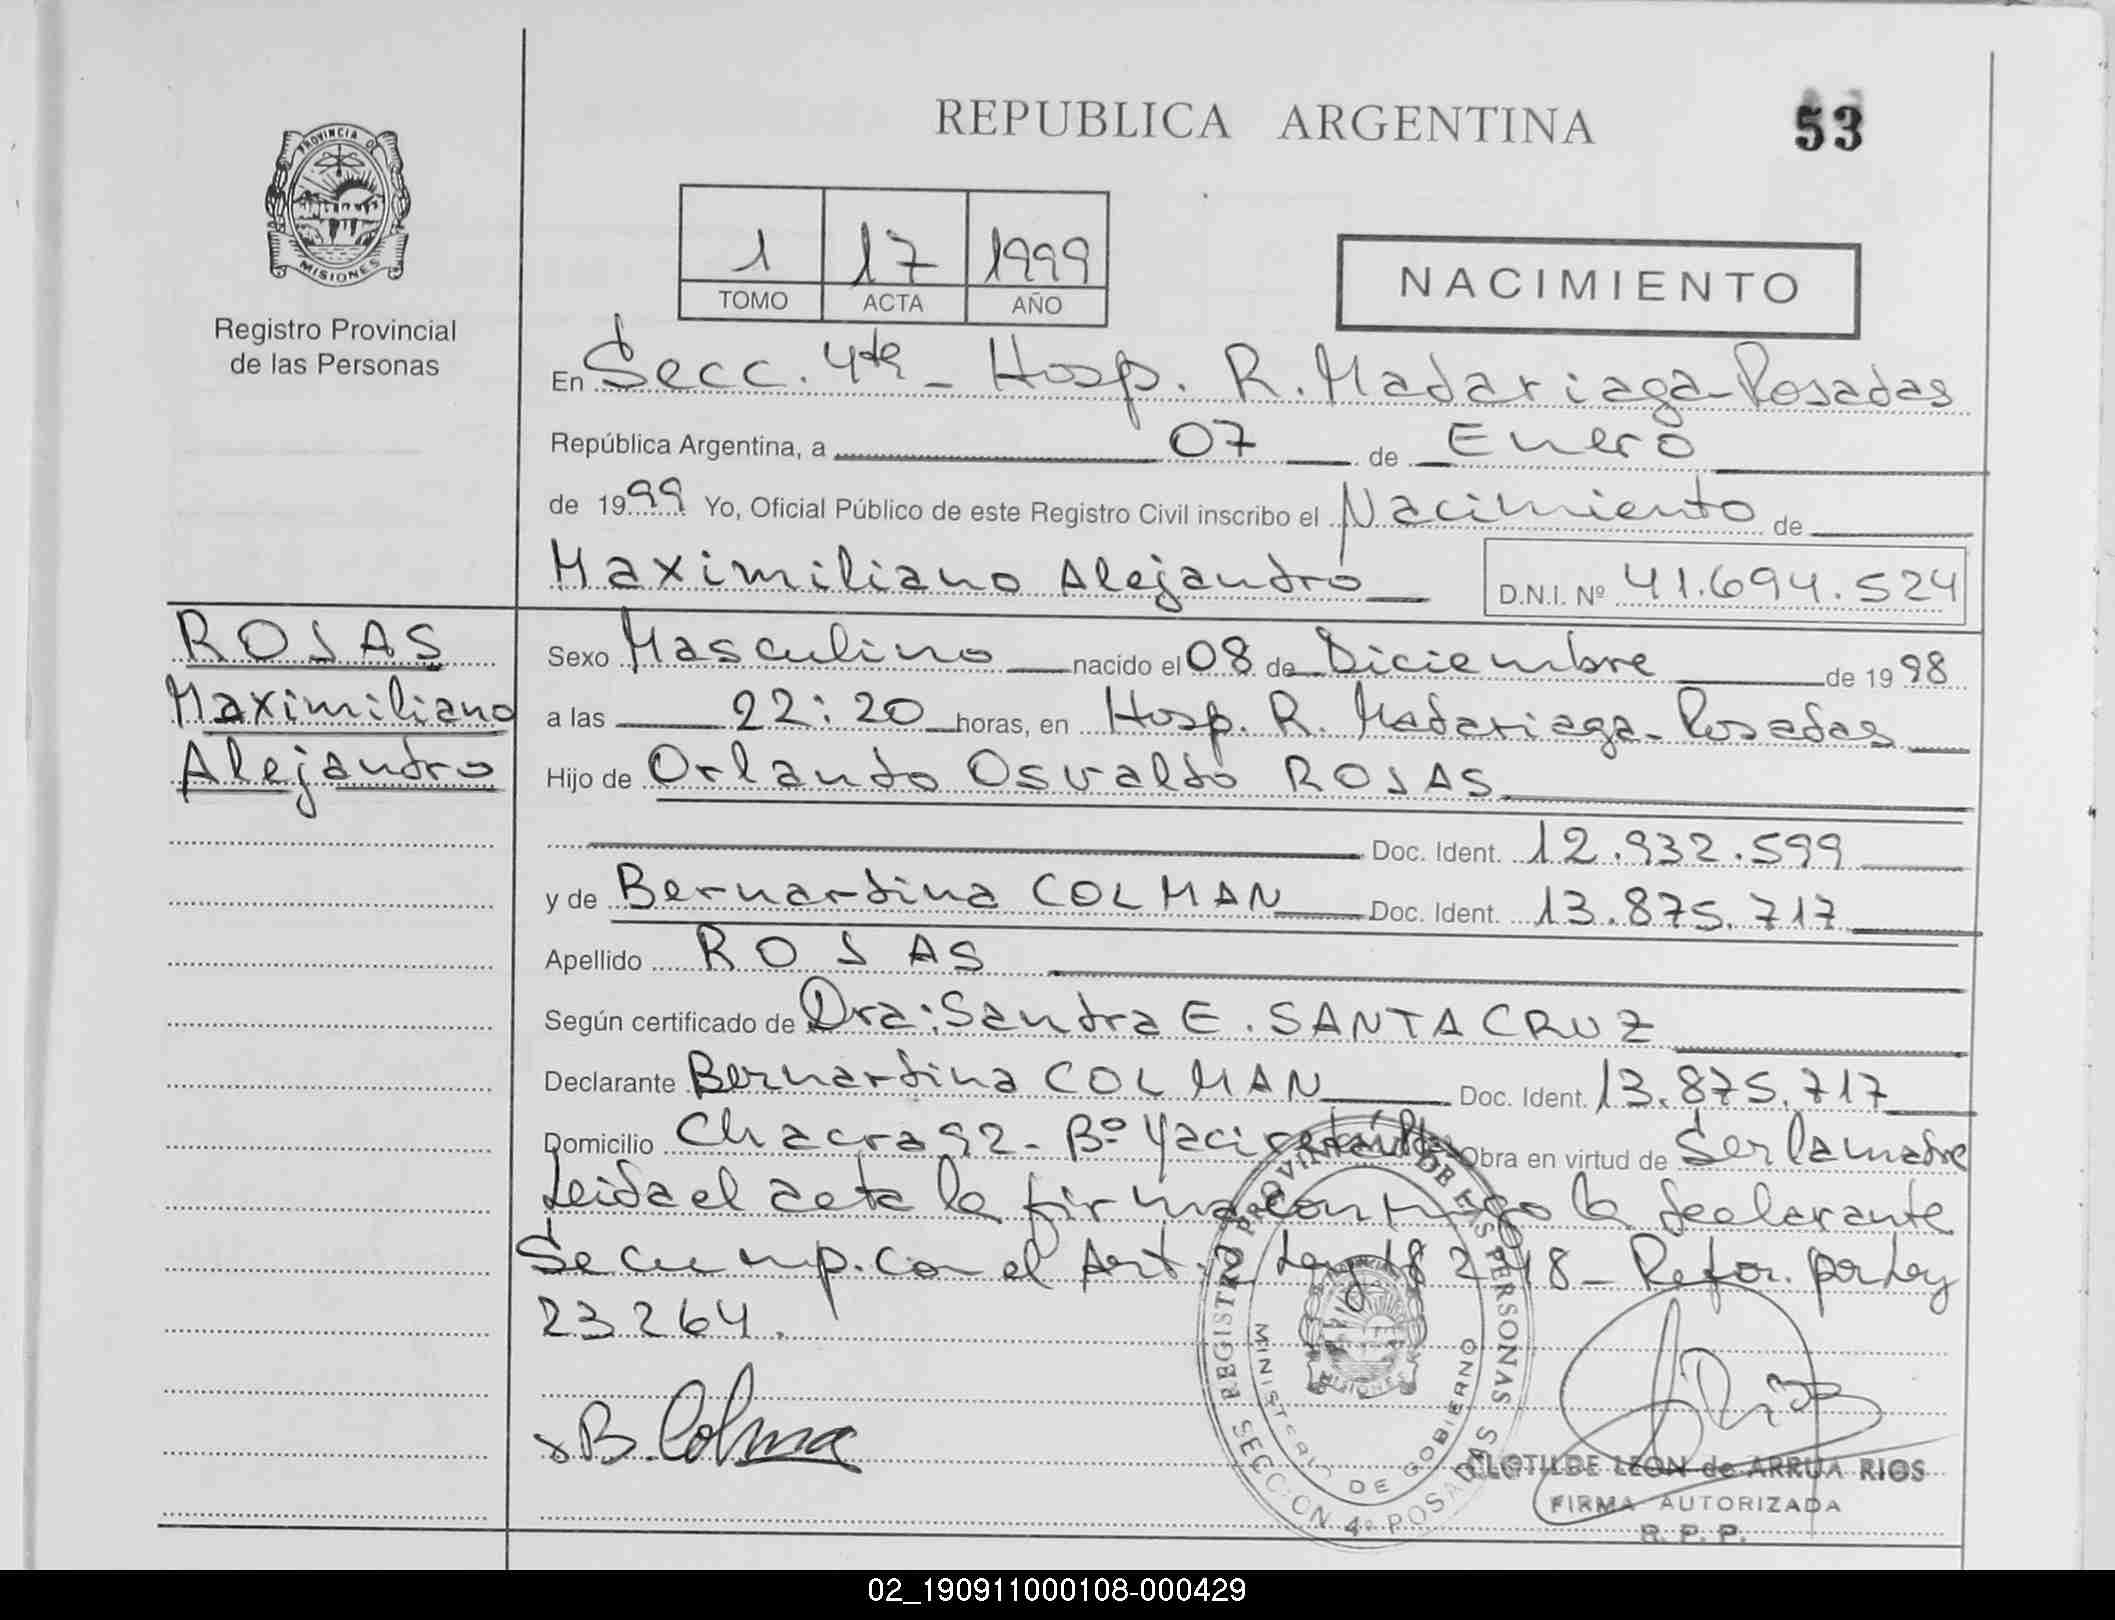 REPUBLICA ARGENTINA
53
PROVINCIA DE
MISIONES
Registro Provincial
de las Personas
1 17 1999
TOMO ACTA AÑO
NACIMIENTO
En Secc. 4ta - Hosp. R. Madariaga - Posadas
República Argentina, a 07 de Enero
de 1999 Yo, Oficial Público de este Registro Civil inscribo el Nacimiento de
Maximiliano Alejandro D.N.I. Nº 41.694.524
ROJAS
Maximiliano
Alejandro
Sexo Masculino nacido el 08 de Diciembre de 1998
a las 22:20 horas, en Hosp. R. Madariaga - Posadas
Hijo de Orlando Osvaldo ROJAS
Doc. Ident. 12.932.599
y de Bernardina COLMAN Doc. Ident. 13.875.717
Apellido ROJAS
Según certificado de Dra: Sandra E. SANTA CRUZ
Declarante Bernardina COLMAN Doc. Ident. 13.875.717
Domicilio Chacra 92 - Bº Obra en virtud de Ser la madre
Leida el acta la firma conmigo la declarante
Se cump. con el Art. 2 Ley 18248 - Refor. por Ley
23264.
x B. Colma
REGISTRO PROVINCIAL DE LAS PERSONAS
MINISTERIO DE GOBIERNO
SECCION 4º POSADAS
MISIONES
CLOTILDE LEON de ARRUA RIOS
FIRMA AUTORIZADA
R. P. P.
02_190911000108-000429